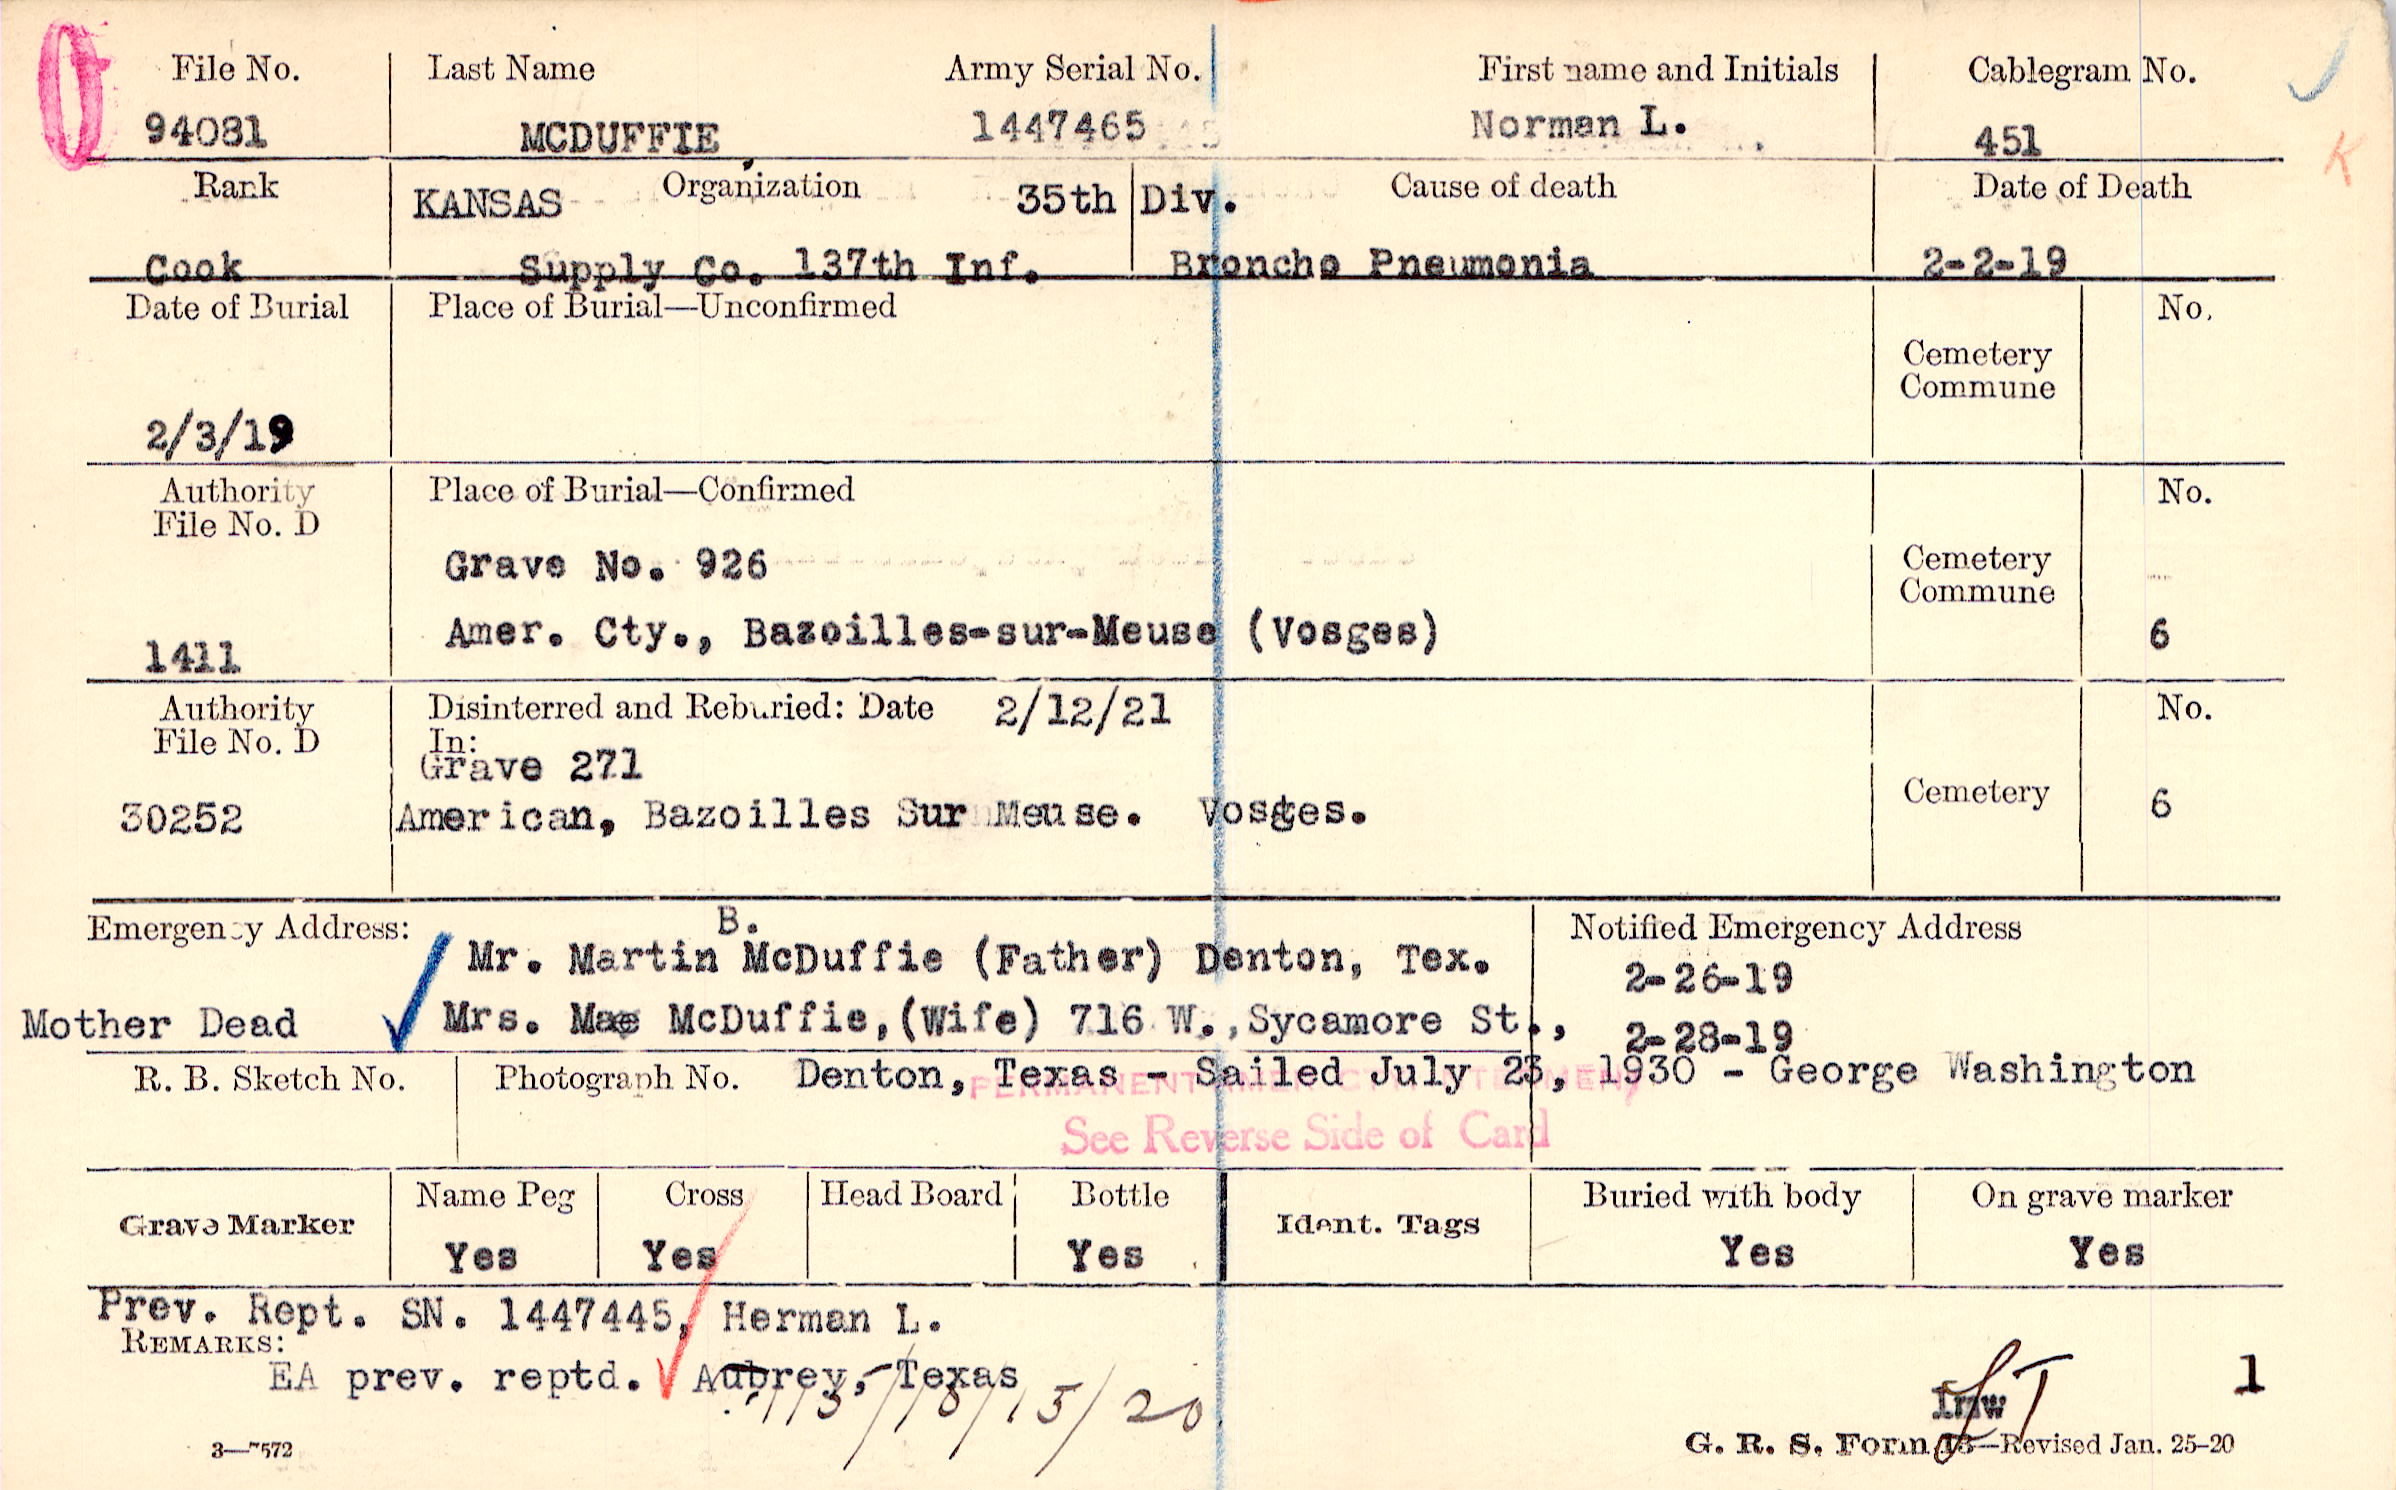 File No. Last Name Army Serial No. First name and Initials Cablegram No.
94081 MCDUFFIE 1447465 Norman L. 451
Rank KANSAS Organization 35th Div. Cause of death Date of Death
Cook Supply Co. 137th Inf. Broncho Pneumonia 2-2-19
Date of Burial Place of Burial—Unconfirmed No.
Cemetery
Commune
2/3/19
Authority Place of Burial—Confirmed No.
File No. D
Grave No. 926 Cemetery
Commune
Amer. Cty., Bazoilles-sur-Meuse (Vosges) 6
1411
Authority Disinterred and Reburied: Date 2/12/21 No.
File No. D In:
Grave 271
Cemetery
30252 American, Bazoilles Sur Meuse. Vosges. 6
Emergency Address: B. Notified Emergency Address
Mr. Martin McDuffie (Father) Denton, Tex. 2-26-19
Mother Dead Mrs. Mae McDuffie,(Wife) 716 W., Sycamore St., 2-28-19
R. B. Sketch No. Photograph No. Denton, Texas - Sailed July 23, 1930 - George Washington
PERMANENT
See Reverse Side of Card
Grave Marker Name Peg Cross Head Board Bottle Ident. Tags Buried with body On grave marker
Yes Yes Yes Yes Yes
Prev. Rept. SN. 1447445, Herman L.
REMARKS:
EA prev. reptd. Aubrey, Texas
1
G. R. S. Form 13—Revised Jan. 25-20
3—7572
K